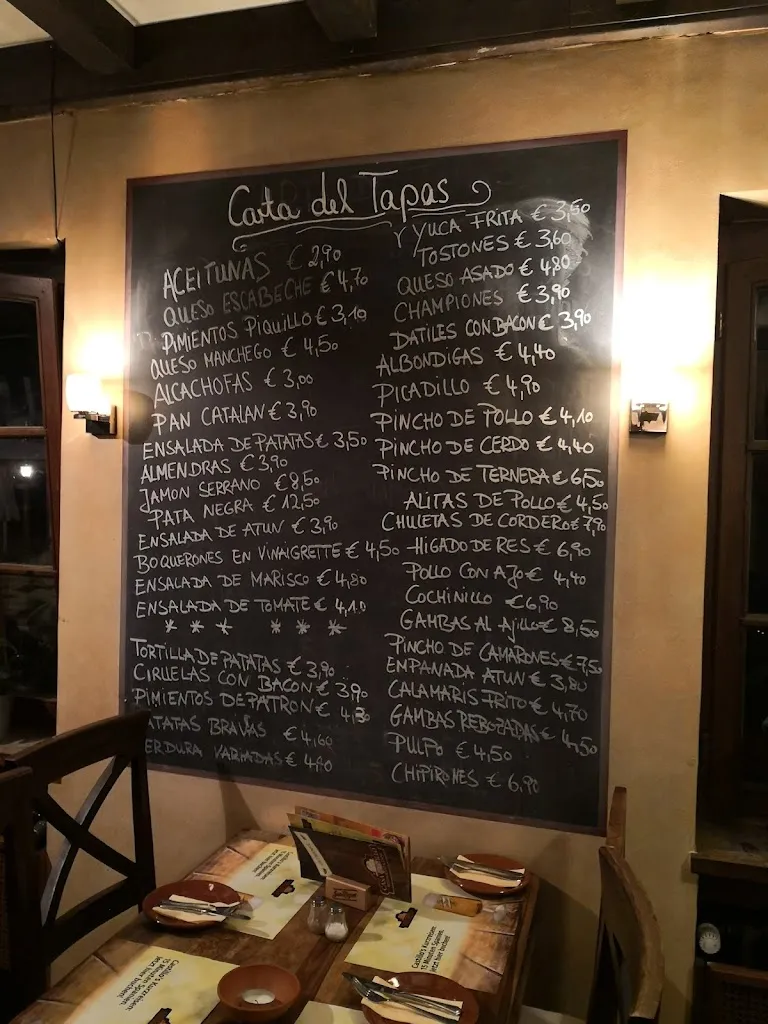 Carta del Tapas
ACEITUNAS € 2,90
QUESO ESCABECHE € 4,70
PIMIENTOS PIQUILLO € 3,10
QUESO MANCHEGO € 4,50
ALCACHOFAS € 3,00
PAN CATALAN € 3,90
ENSALADA DE PATATAS € 3,50
ALMENDRAS € 3,90
JAMON SERRANO € 8,50
PATA NEGRA € 12,50
ENSALADA DE ATUN € 3,90
BOQUERONES EN VINAIGRETTE € 4,50
ENSALADA DE MARISCO € 4,80
ENSALADA DE TOMATE € 4,10
* * * * * *
TORTILLA DE PATATAS € 3,90
CIRUELAS CON BACON € 3,90
PIMIENTOS DE PATRON €
ATATAS BRAVAS € 4,60
ERDURA VARIADAS €
YUCA FRITA € 3,50
TOSTONES € 3,60
QUESO ASADO € 4,80
CHAMPIONES € 3,90
DATILES CON BACON € 3,90
ALBONDIGAS € 4,40
PICADILLO € 4,90
PINCHO DE POLLO € 4,10
PINCHO DE CERDO € 4,40
PINCHO DE TERNERA € 6,50
ALITAS DE POLLO € 4,50
CHULETAS DE CORDERO € 7,90
HIGADO DE RES € 6,90
POLLO CON AJO € 4,40
COCHINILLO € 6,90
GAMBAS AL AJILLO € 8,50
PINCHO DE CAMARONES € 7,50
EMPANADA ATUN € 3,80
CALAMARIS FRITO € 4,70
GAMBAS REBOZADAS € 4,50
PULPO € 4,50
CHIPIRONES € 6,90
Castillo's Kurzreisen
15 Minuten Spanien
Jetzt hier buchen!
Castillo's Kurzreisen
15 Minuten Spanien
Jetzt hier buchen!